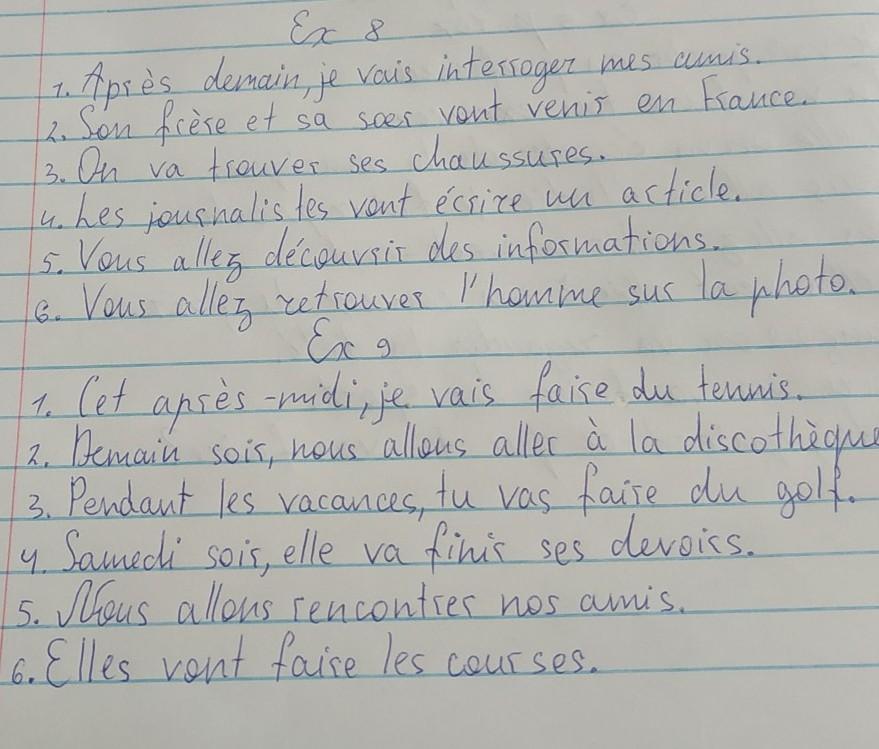 Ex 8
1. Après demain, je vais interroger mes amis.
2. Son frère et sa soer vont venir en France.
3. On va trouver ses chaussures.
4. Les journalistes vont écrire un article.
5. Vous allez découvrir des informations.
6. Vous allez retrouver l'homme sur la photo.
Ex 9
1. Cet après-midi, je vais faire du tennis.
2. Demain soir, nous allons aller à la discothèque
3. Pendant les vacances, tu vas faire du golf.
4. Samedi soir, elle va finir ses devoirs.
5. Nous allons rencontrer nos amis.
6. Elles vont faire les courses.